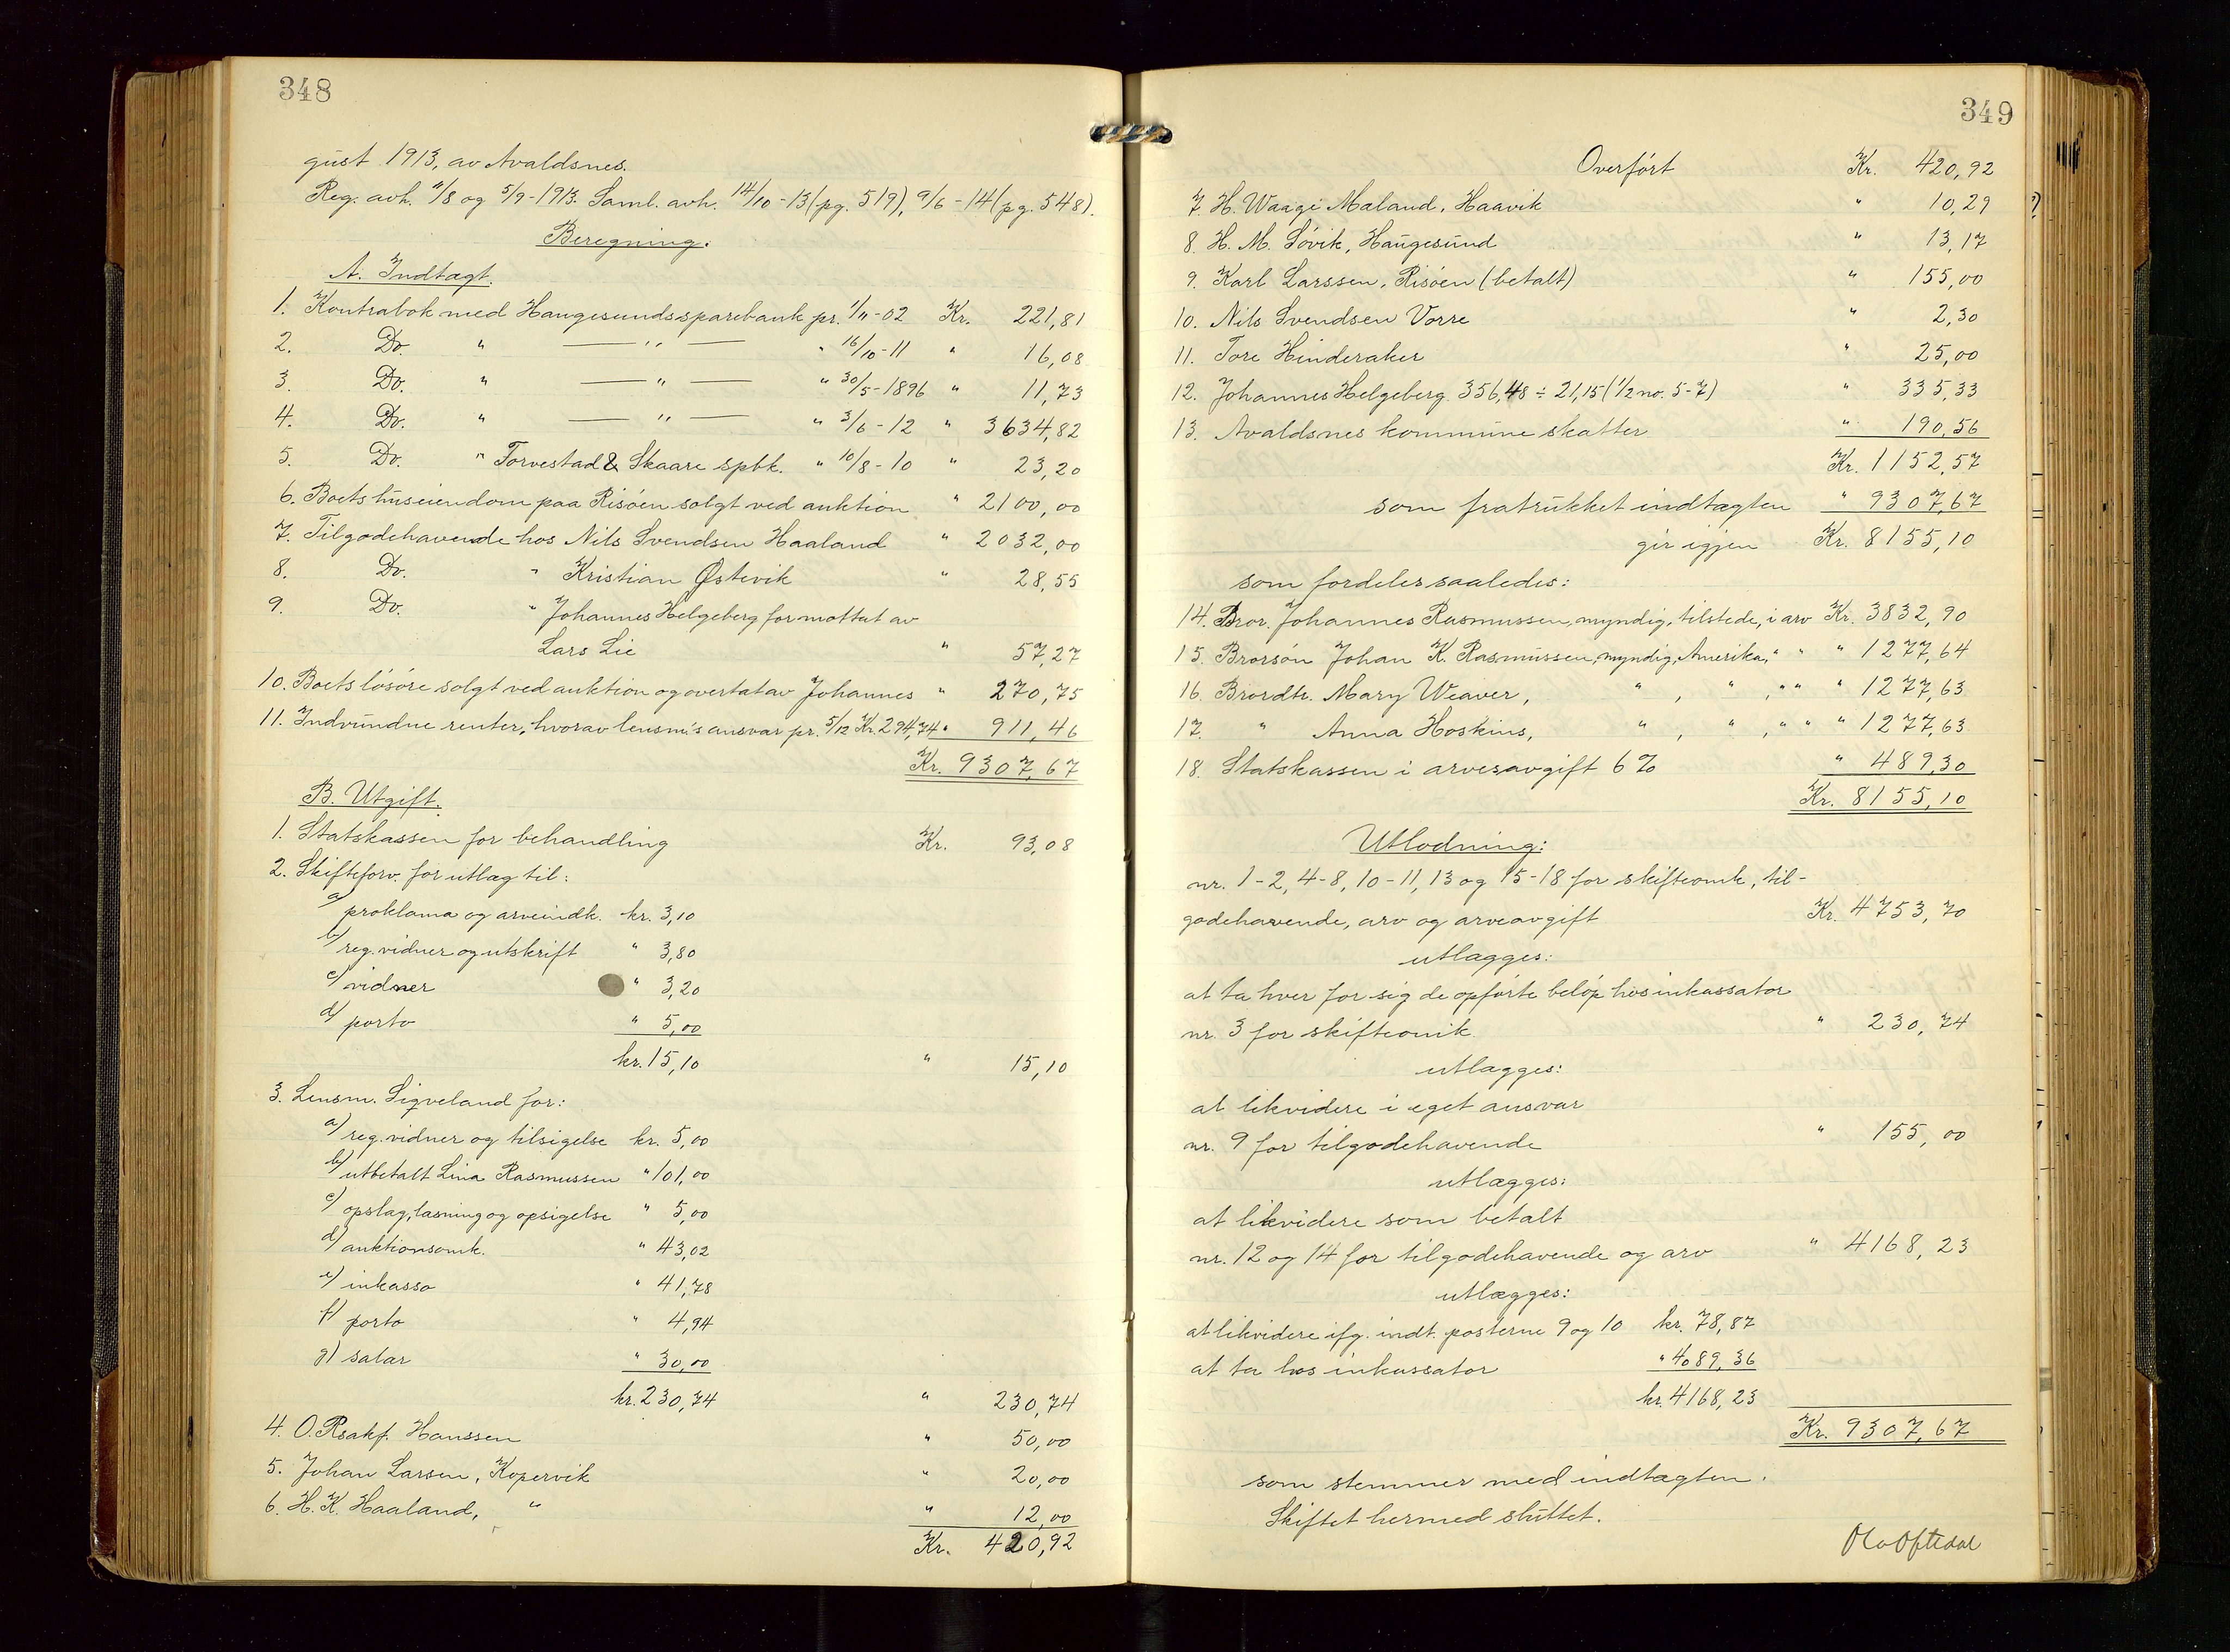 348
gust 1913, av Avaldsnes.
Reg. avh. 4/8 og 5/9-1913. Saml. avh. 14/10-13 (pg. 519), 9/6-14 (pg. 548).
Beregning.
A. Indtægt.
1. Kontrabok med Haugesunds sparebank pr. 1/11-02 Kr. 221,81
2. Do. " — " — " 16/10-11 " 16,08
3. Do. " — " — " 30/5-1896 " 11,73
4. Do. " — " — " 3/6-12 " 3634,82
5. Do. " Torvestad & Skaare spbk. " 10/8-10 " 23,20
6. Boets huseiendom paa Risøen solgt ved auktion " 2100,00
7. Tilgodehavende hos Nils Svendsen Haaland " 2032,00
8. Do. " Kristian Østevik " 28,55
9. Do. " Johannes Helgeberg for mottat av
Lars Lie " 57,27
10. Boets løsøre solgt ved auktion og overtat av Johannes " 270,75
11. Indvundne renter, hvorav lensm's ansvar pr. 5/12 Kr. 294,74 " 911,46
Kr. 9307,67
B. Utgift.
1. Statskassen for behandling Kr. 93,08
2. Skifteforv. for utlæg til:
a) proklama og arveindk. kr. 3,10
b) reg. vidner og utskrift " 3,80
c) vidner " 3,20
d) porto " 5,00
kr. 15,10 " 15,10
3. Lensm. Sigveland for:
a) reg. vidner og tilsigelse kr. 5,00
b) utbetalt Lina Rasmussen " 101,00
c) opslag, læsning og opsigelse " 5,00
d) auktionsomk. " 43,02
e) inkasso " 41,78
f) porto " 4,94
g) salær " 30,00
kr. 230,74 " 230,74
4. O.Rsakf. Hanssen " 50,00
5. Johan Larsen, Kopervik " 20,00
6. H. K. Haaland, " " 12,00
Kr. 420,92
349
Overført Kr. 420,92
7. H. Waage Mæland, Haavik " 10,29
8. H. M. Søvik, Haugesund " 13,17
9. Karl Larssen, Risøen (betalt) " 155,00
10. Nils Svendsen Vorre " 2,30
11. Tore Hinderaker " 25,00
12. Johannes Helgeberg 356,48 ÷ 21,15 (1/2 no. 5-7) " 335,33
13. Avaldsnes kommune skatter " 190,56
Kr. 1152,57
som fratrukket indtægten " 9307,67
gir igjen Kr. 8155,10
som fordeles saaledes:
14. Bror. Johannes Rasmussen, myndig, tilstede, i arv Kr. 3832,90
15. Brorsøn Johan K. Rasmussen, myndig, Amerika, " " " 1277,64
16. Brordtr. Mary Weaver, " , " , " " " 1277,63
17. " Anna Hoskins, " , " , " " " 1277,63
18. Statskassen i arvesavgift 6% " 489,30
Kr. 8155,10
Utlodning:
nr. 1-2, 4-8, 10-11, 13 og 15-18 for skifteomk, til-
godehavende, arv og arveavgift Kr. 4753,70
utlægges:
at ta hver for sig de opførte beløp hos inkassator
nr. 3 for skifteomk. " 230,74
utlægges:
at likvidere i eget ansvar
nr. 9 for tilgodehavende " 155,00
utlægges:
at likvidere som betalt
nr. 12 og 14 for tilgodehavende og arv " 4168,23
utlægges:
at likvidere ifg. indt. posterne 9 og 10 kr. 78,87
at ta hos inkassator " 4089,36
kr. 4168,23
Kr. 9307,67
som stemmer med indtægten.
Skiftet hermed sluttet.
Ola Oftedal